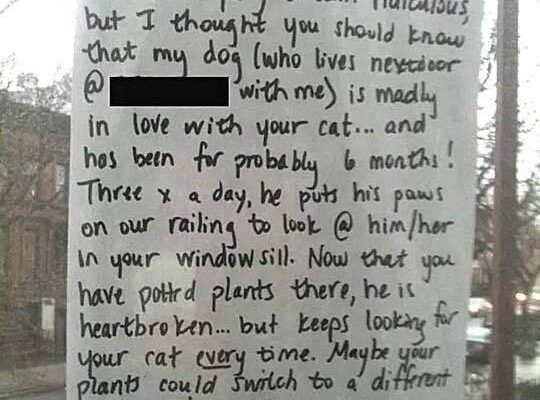 ridiculous,
but I thought you should know
that my dog (who lives nextdoor
@ with me) is madly
in love with your cat... and
has been for probably 6 months!
Three x a day, he puts his paws
on our railing to look @ him/her
in your windowsill. Now that you
have pottrd plants there, he is
heartbroken... but keeps looking for
your cat every time. Maybe your
plants could switch to a different